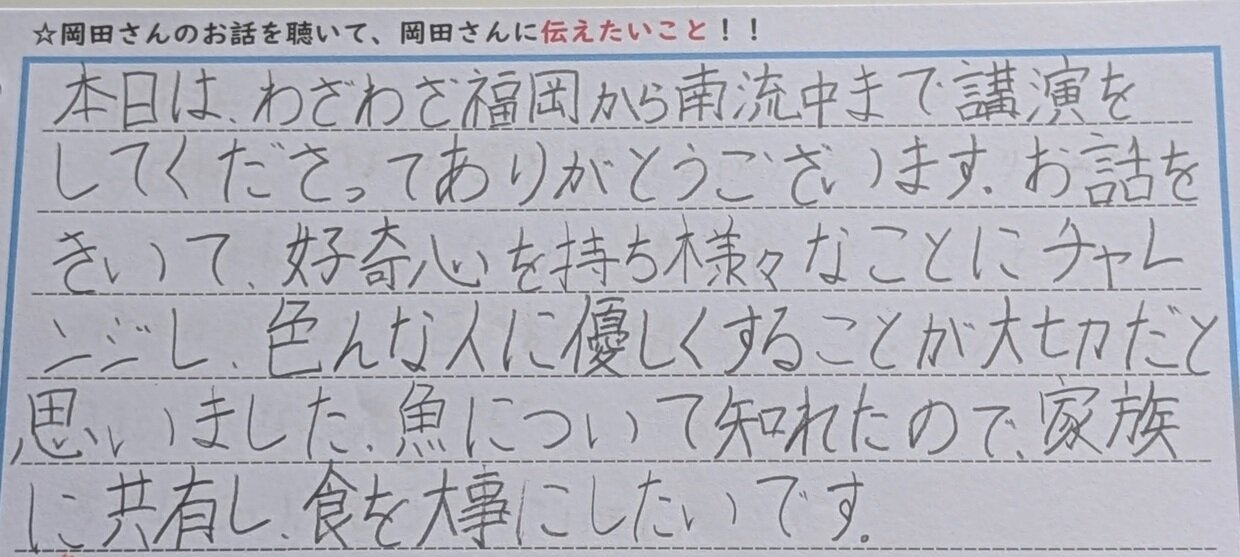 ☆岡田さんのお話を聴いて、岡田さんに伝えたいこと！！
本日は、わざわざ福岡から南流中まで講演を
してくださってありがとうございます。お話を
きいて、好奇心を持ち様々なことにチャレ
ンジし、色んな人に優しくすることが大切だと
思いました。魚について知れたので、家族
に共有し、食を大事にしたいです。